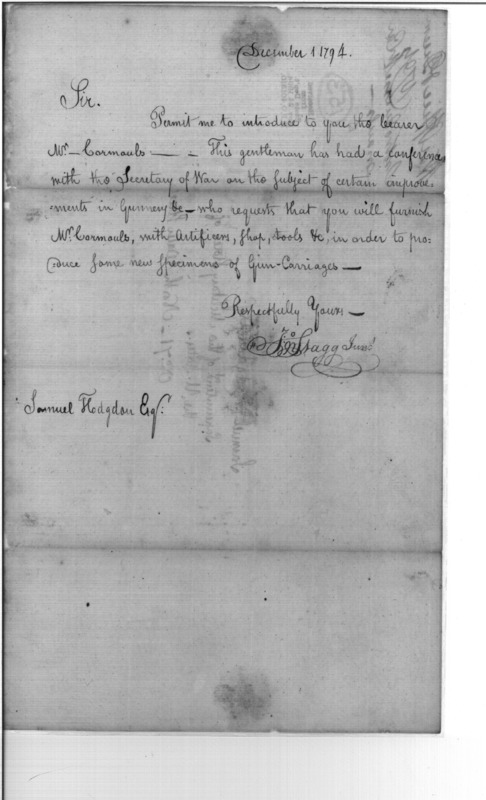 December 1 1794.
Sir.
Permit me to introduce to you the bearer
Mr. Cormouls — — This gentleman has had a conference
with the Secretary of War on the Subject of certain improve-
ments in Gunnery &c — who requests that you will furnish
Mr. Cormouls, with Artificers, Shop, tools &c, in order to pro-
duce some new specimens of Gun-Carriages —
Respectfully Yours —
Jno Stagg Junr
Samuel Hodgdon Esqr.